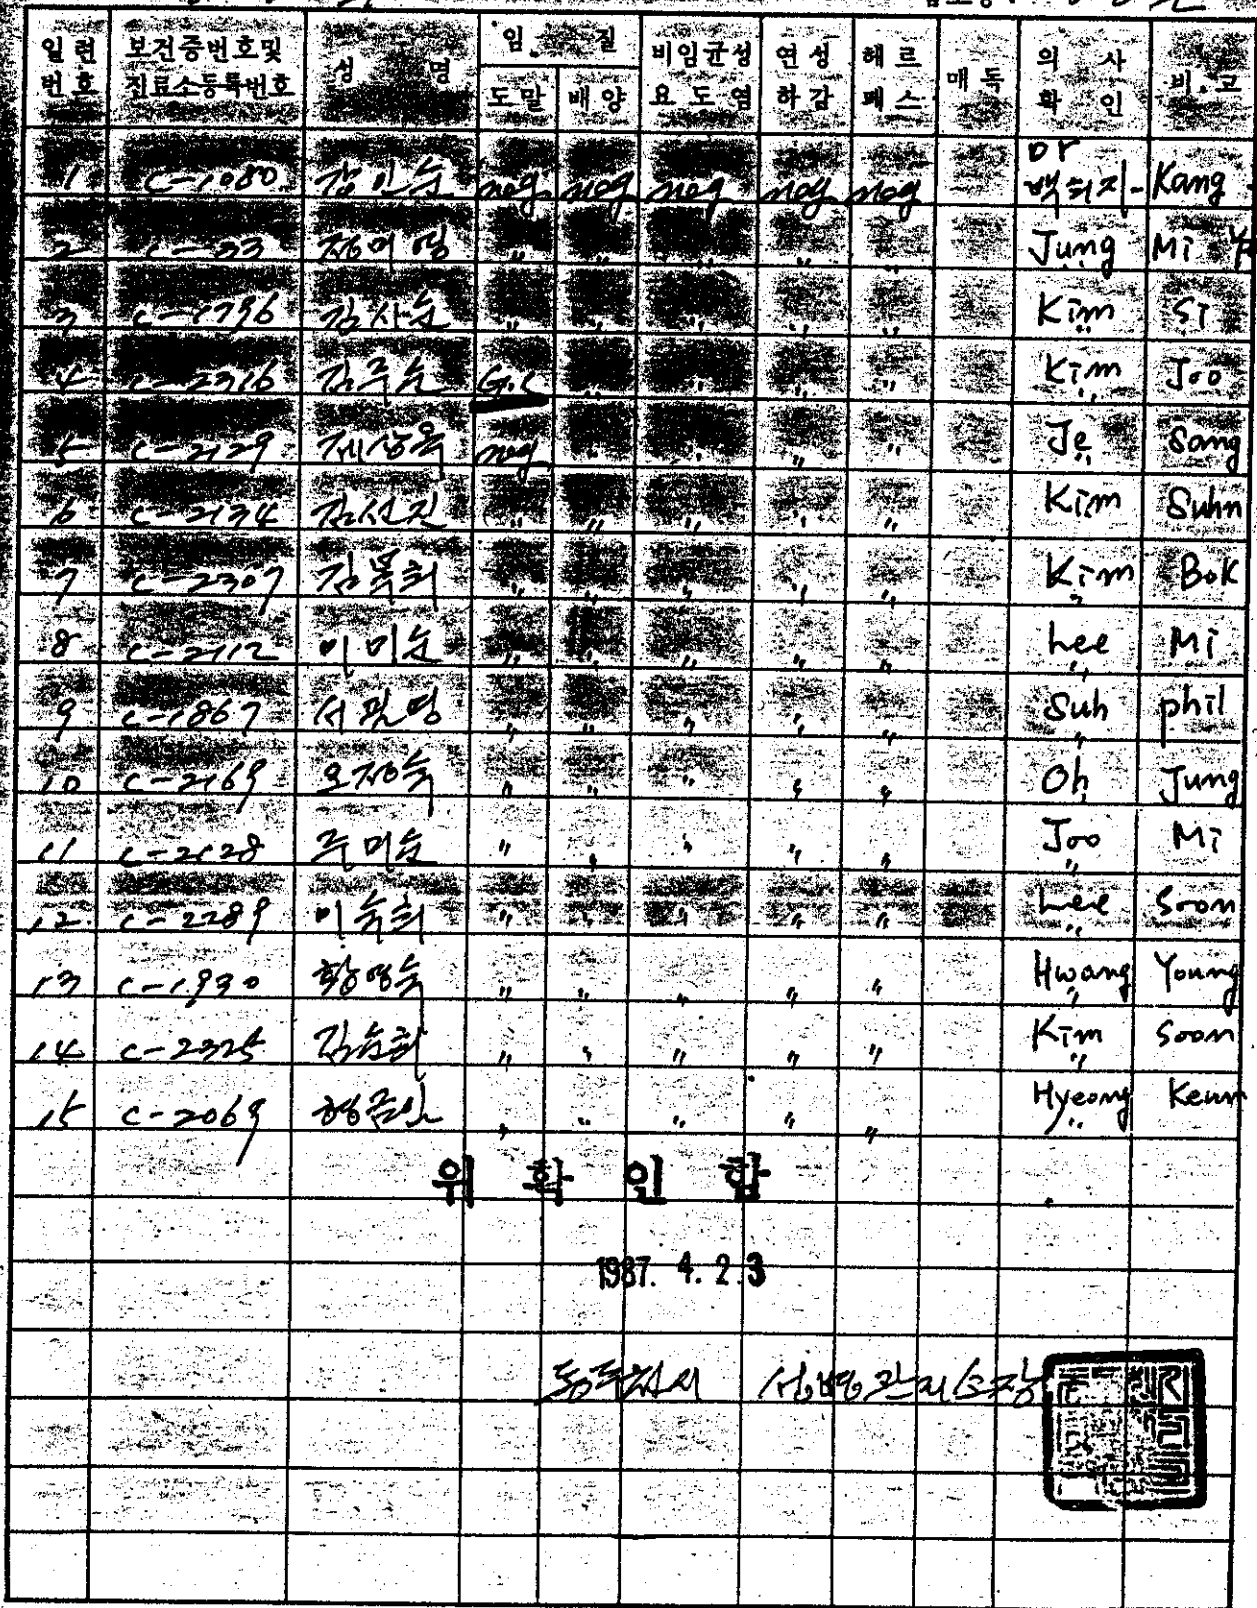 일련번호 보건증번호및진료소등록번호 성명 임질 도말 배양 비임균성요도염 연성하감 헤르페스 매독 의사확인 비고
1 C-1080 강인순 neg neg neg neg neg Dr 백희지- Kang
2 C-33 정미영 " " " " " Jung Mi
3 C-1796 김시순 " " " " " Kim Si
4 C-2316 김주순 G.C " " " " Kim Joo
5 C-2129 제상옥 neg " " " " Je Sang
6 C-2134 김선진 " " " " " Kim Suhn
7 C-2307 김복희 " " " " " Kim Bok
8 C-2112 이미순 " " " " " Lee Mi
9 C-1867 서필영 " " " " " Suh phil
10 C-2169 오정숙 " " " " " Oh Jung
11 C-2128 주미순 " " " " " Joo Mi
12 C-2289 이숙희 " " " " " Lee Soon
13 C-1930 황영숙 " " " " " Hwang Young
14 C-2325 김순화 " " " " " Kim Soon
15 C-2069 형금안 " " " " " Hyeong Keum
위 확인함
1987. 4. 23
동두천시 성병관리소장